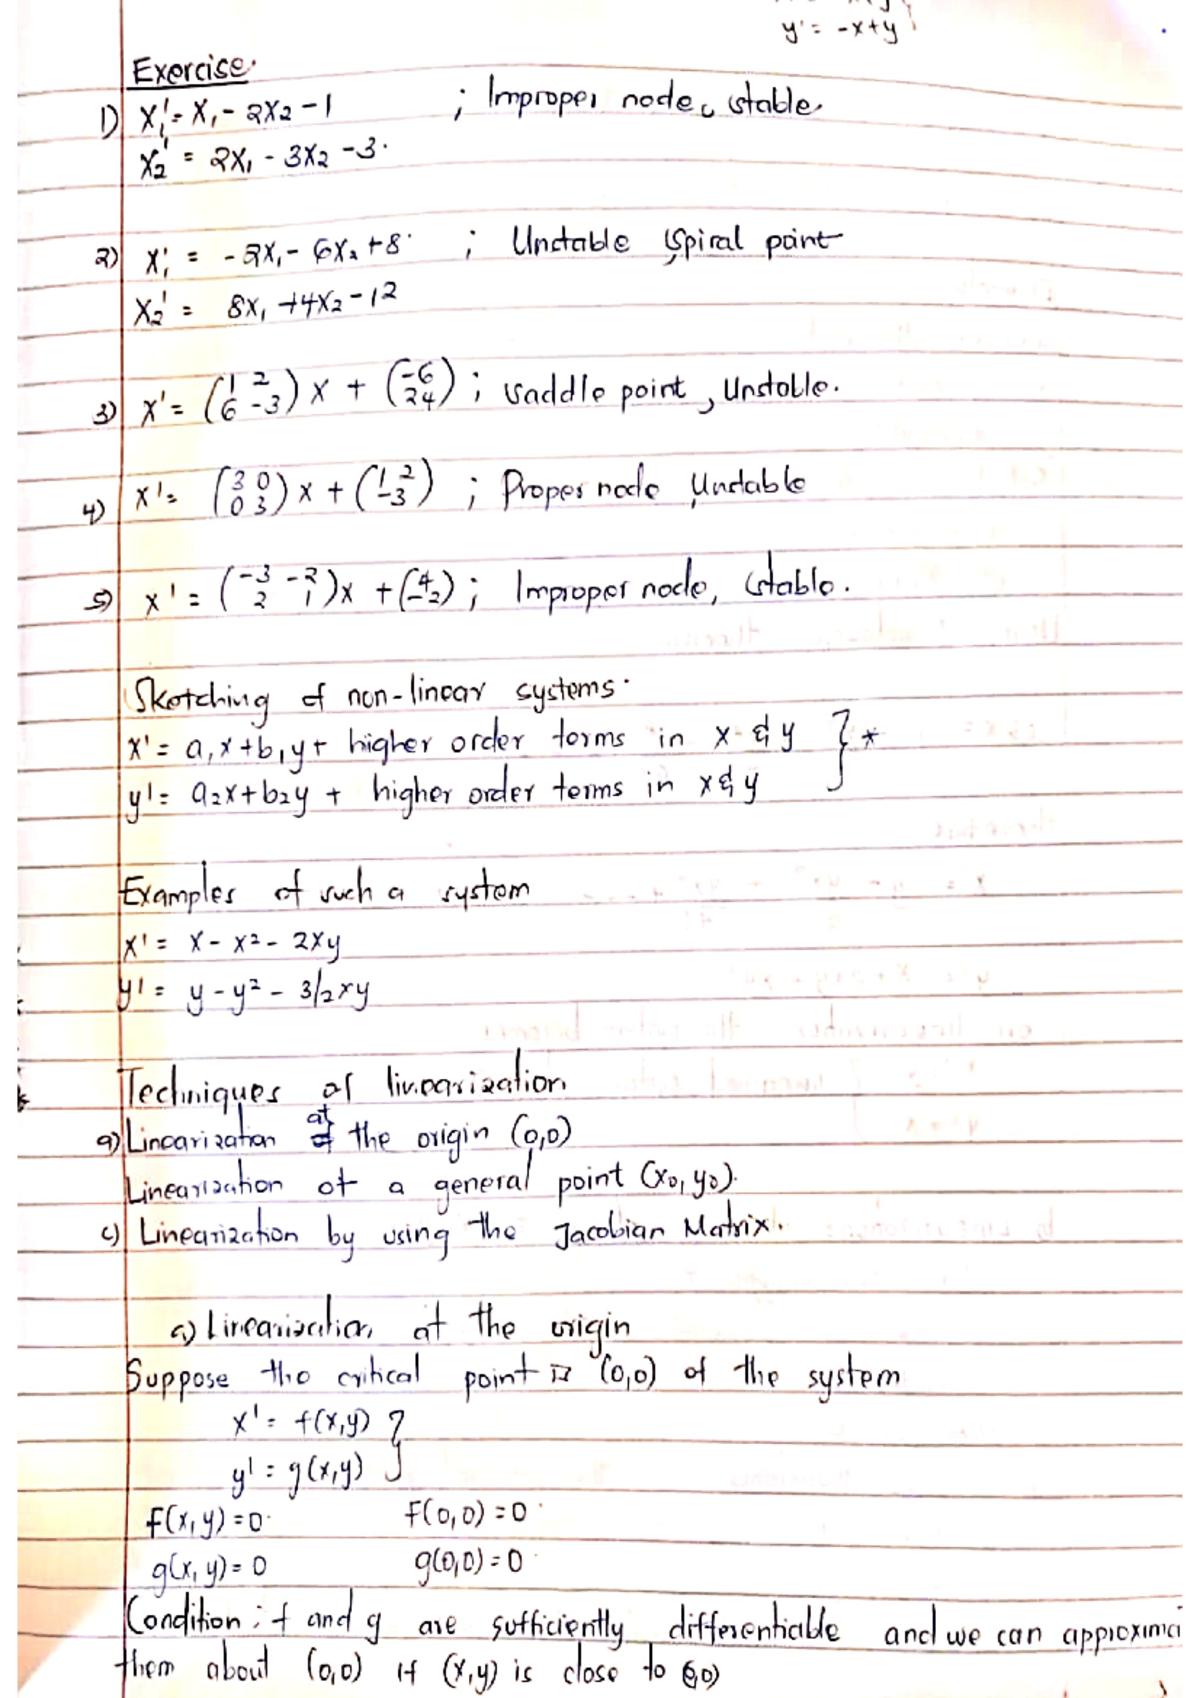 y' = -x+y
Exercise.
1) x₁' = x₁ - 2x₂ - 1 ; Improper node, stable.
x₂' = 2x₁ - 3x₂ - 3.
2) x₁' = -2x₁ - 6x₂ + 8. ; Unstable Spiral point
x₂' = 8x₁ + 4x₂ - 12
3) x' = (1 2
6 -3) x + (-6
24) ; saddle point, Unstable.
4) x' = (3 0
0 3) x + (12
-3) ; Proper node Unstable
5) x' = (-3 -2
2 1) x + (4
-2) ; Improper node, stable.
Sketching of non-linear systems.
x' = a₁x + b₁y + higher order terms in x & y } *
y' = a₂x + b₂y + higher order terms in x & y
Examples of such a system
x' = x - x² - 2xy
y' = y - y² - 3/2xy
Techniques of linearization
a) Linearization at the origin (0,0)
Linearization of a general point (x₀, y₀).
c) Linearization by using the Jacobian Matrix.
a) Linearization at the origin
Suppose the critical point is (0,0) of the system
x' = f(x,y) }
y' = g(x,y)
f(x,y) = 0. F(0,0) = 0.
g(x,y) = 0 g(0,0) = 0.
Condition: f and g are sufficiently differentiable and we can approxima
them about (0,0) if (x,y) is close to (0,0)